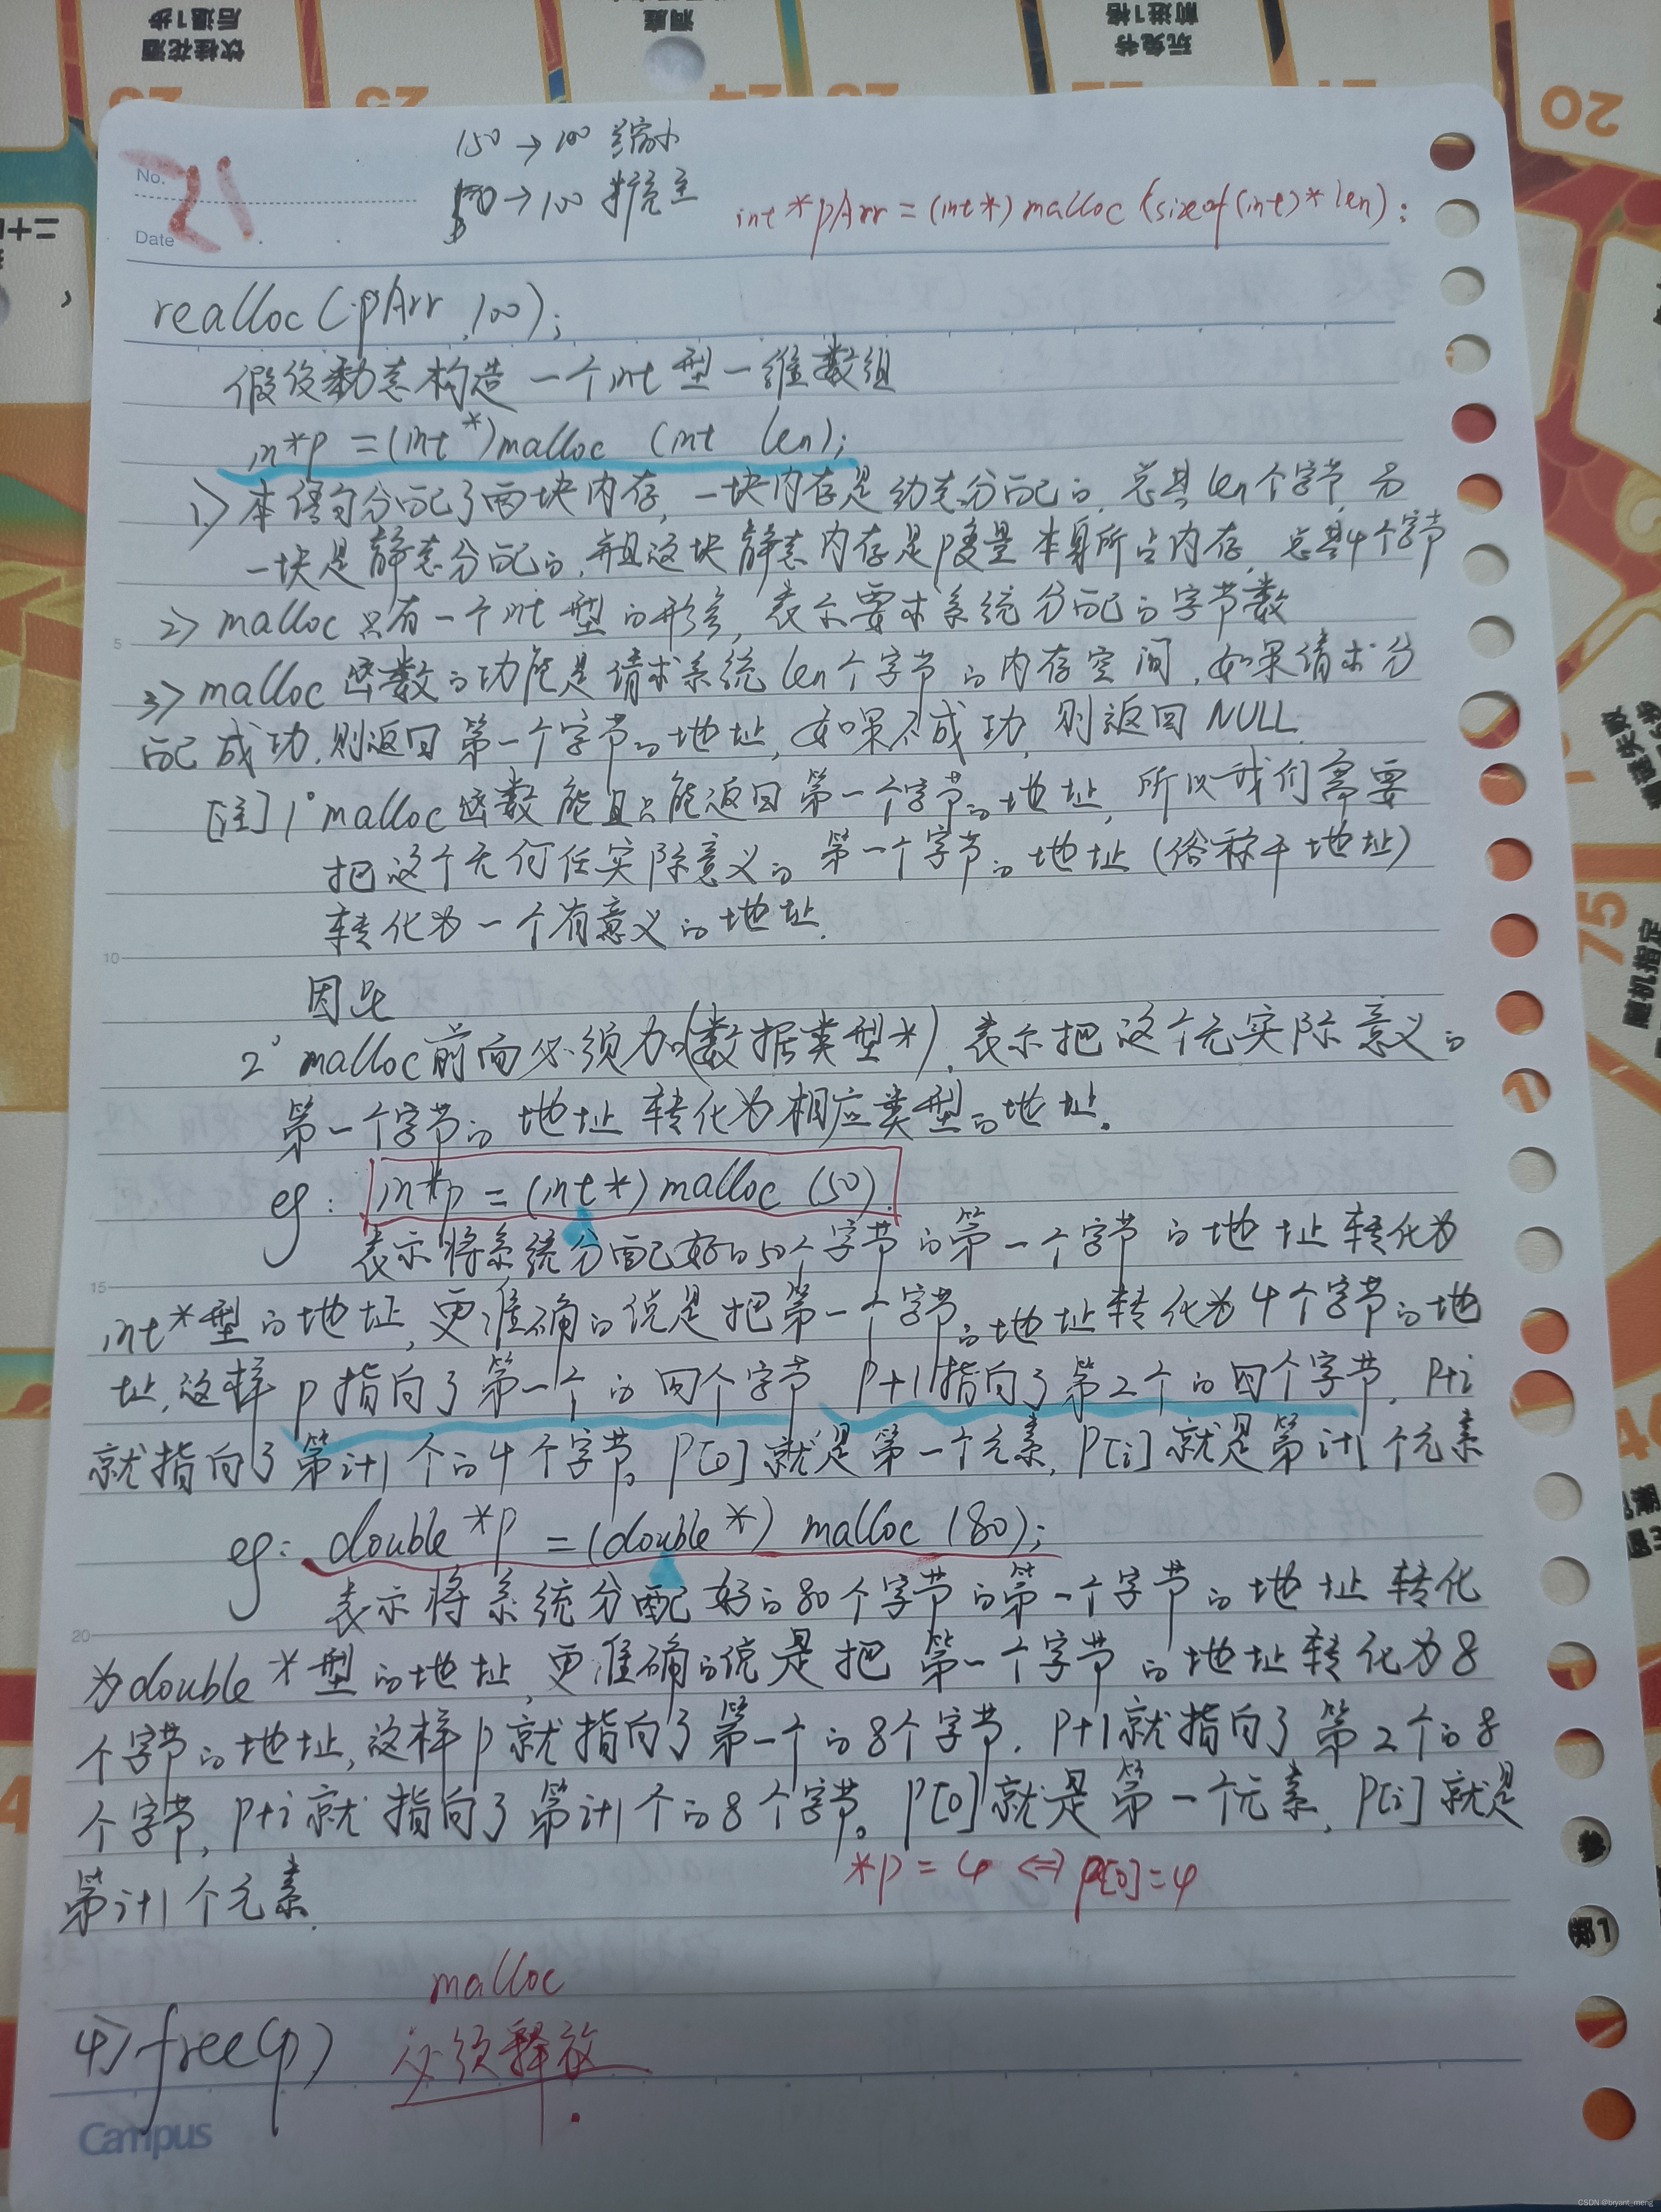 饮桂花酒
后退1步
洞庭
玩兔爷
前进1格
25
24
20
No. 21
Date
150 → 100 缩小
50 → 100 扩充
int *pArr = (int*) malloc (sizeof(int)* len);
realloc (pArr, 100);
假设动态构造一个int型一维数组
in*p = (int*)malloc (int len);
1> 本语句分配了两块内存, 一块内存是动态分配的, 总共len个字节, 另
一块是静态分配的, 并且这块静态内存是p变量本身所占内存, 总共4个字节
2> malloc只有一个int型的形参, 表示要求系统分配的字节数
3> malloc函数的功能是请求系统len个字节的内存空间, 如果请求分
配成功, 则返回第一个字节的地址, 如果不成功, 则返回NULL.
[注] 1° malloc函数能且只能返回第一个字节的地址, 所以我们需要
把这个无何任实际意义的第一个字节的地址 (俗称干地址)
转化为一个有意义的地址.
因此
2° malloc前面必须加(数据类型*), 表示把这个无实际意义的
第一个字节的地址转化为相应类型的地址.
eg: in*p = (int*) malloc (50)
表示将系统分配好的50个字节的第一个字节的地址转化为
int*型的地址, 更准确的说是把第一个字节的地址转化为4个字节的地
址, 这样p指向了第一个的四个字节 p+1指向了第2个的四个字节, p+i
就指向了第i+1个的4个字节。p[0]就是第一个元素, p[i]就是第i+1个元素
eg: double *p = (double *) malloc (80);
表示将系统分配好的80个字节的第一个字节的地址转化
为double *型的地址, 更准确的说是把第一个字节的地址转化为8
个字节的地址, 这样p就指向了第一个的8个字节. p+1就指向了第2个的8
个字节, p+i就指向了第i+1个的8个字节。p[0]就是第一个元素, p[i]就是
第i+1个元素.
*p = 4 <=> p[0]=4
malloc
4> free(p) 必须释放
5
10
15
20
Campus
75
随机指定
CSDN @bryant_meng